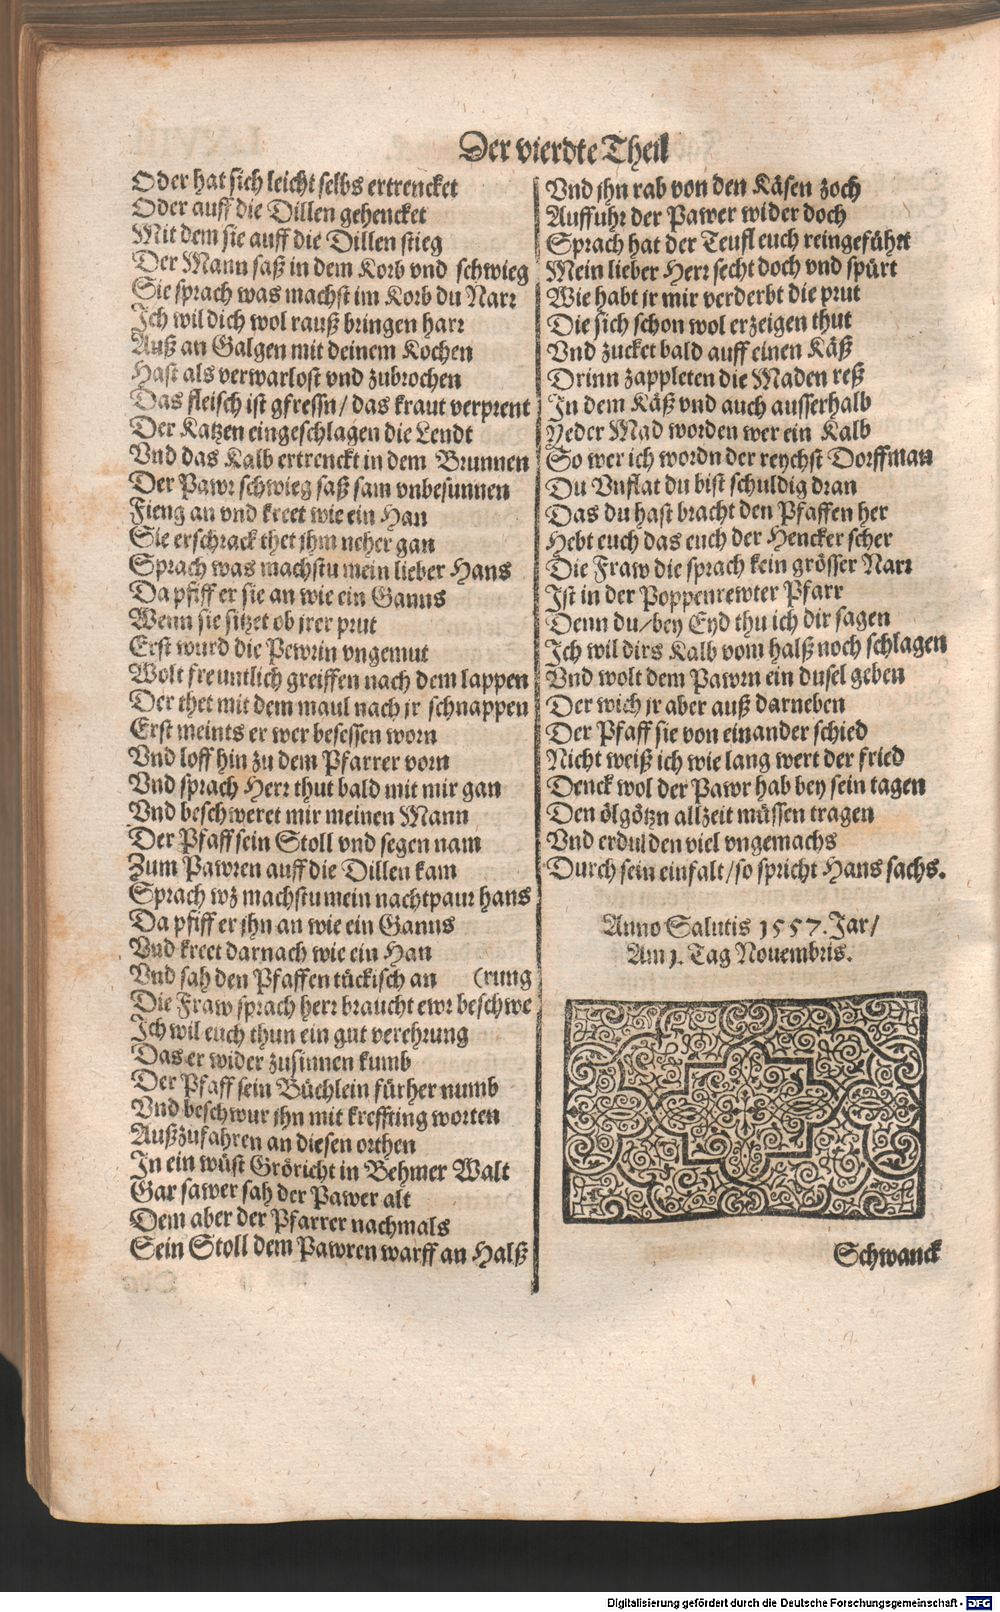 Der vierdte Theil
Oder hat sich leicht selbs ertrencket
Oder auff die Dillen gehencket
Mit dem sie auff die Dillen stieg
Der Mann saß in dem Korb vnd schwieg
Sie sprach was machst im Korb du Narr
Ich wil dich wol rauß bringen harr
Auß an Galgen mit deinem Kochen
Hast als verwarlost vnd zubrochen
Das fleisch ist gfressn / das kraut verprent
Der Katzen eingeschlagen die Lendt
Vnd das Kalb ertrenckt in dem Brunnen
Der Pawr schwieg saß sam vnbesunnen
Fieng an vnd kreet wie ein Han
Sie erschrack thet jhm neher gan
Sprach was machstu mein lieber Hans
Da pfiff er sie an wie ein Ganns
Wenn sie sitzet ob jrer prut
Erst wurd die Pewrin vngemut
Wolt freuntlich greiffen nach dem lappen
Der thet mit dem maul nach jr schnappen
Erst meints er wer besessen worn
Vnd loff hin zu dem Pfarrer vorn
Vnd sprach Herr thut bald mit mir gan
Vnd beschweret mir meinen Mann
Der Pfaff sein Stoll vnd segen nam
Zum Pawren auff die Dillen kam
Sprach wz machstu mein nachtpaur hans
Da pfiff er jhn an wie ein Ganns
Vnd kreet darnach wie ein Han
Vnd sah den Pfaffen tückisch an (rung
Die Fraw sprach herr braucht ewr beschwe
Ich wil euch thun ein gut verehrung
Das er wider zusinnen kumb
Der Pfaff sein Büchlein fürher numb
Vnd beschwur jhn mit kreffting worten
Außzufahren an diesen orthen
In ein wüst Gröricht in Behmer Walt
Gar sawer sah der Pawer alt
Dem aber der Pfarrer nachmals
Sein Stoll dem Pawren warff an Halß
Vnd jhn rab von den Käsen zoch
Auffuhr der Pawer wider doch
Sprach hat der Teufl euch reingeführt
Mein lieber Herr secht doch vnd spürt
Wie habt jr mir verderbt die prut
Die sich schon wol erzeigen thut
Vnd zucket bald auff einen Käß
Drinn zappleten die Maden reß
In dem Käß vnd auch ausserhalb
Yeder Mad worden wer ein Kalb
So wer ich wordn der reychst Dorffman
Du Vnflat du bist schuldig dran
Das du hast bracht den Pfaffen her
Hebt euch das euch der Hencker scher
Die Fraw die sprach kein grösser Narr
Ist in der Poppenrewter Pfarr
Denn du / bey Eyd thu ich dir sagen
Ich wil dirs Kalb vom halß noch schlagen
Vnd wolt dem Pawrn ein dusel geben
Der wich jr aber auß darneben
Der Pfaff sie von einander schied
Nicht weiß ich wie lang wert der fried
Denck wol der Pawr hab bey sein tagen
Den ölgötzn allzeit müssen tragen
Vnd erdulden viel vngemachs
Durch sein einfalt / so spricht Hans sachs.
Anno Salutis 1557. Jar /
Am 1. Tag Nouembris.
Schwanck
Digitalisierung gefördert durch die Deutsche Forschungsgemeinschaft - DFG